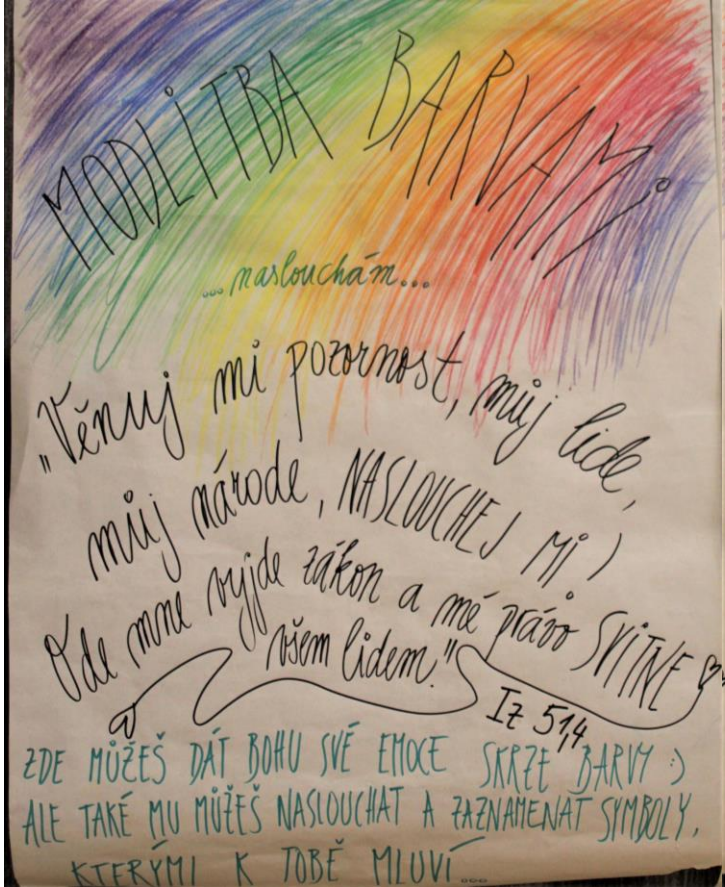 MODLITBA BARVAMI
...naslouchám...
"Věnuj mi pozornost, můj lide,
můj národe, NASLOUCHEJ MI!
Ode mne vyjde zákon a mé právo SVITNE
všem lidem."
Iz 51,4
ZDE MŮŽEŠ DÁT BOHU SVÉ EMOCE SKRZE BARVY :)
ALE TAKÉ MU MŮŽEŠ NASLOUCHAT A ZAZNAMENAT SYMBOLY,
KTERÝMI K TOBĚ MLUVÍ...